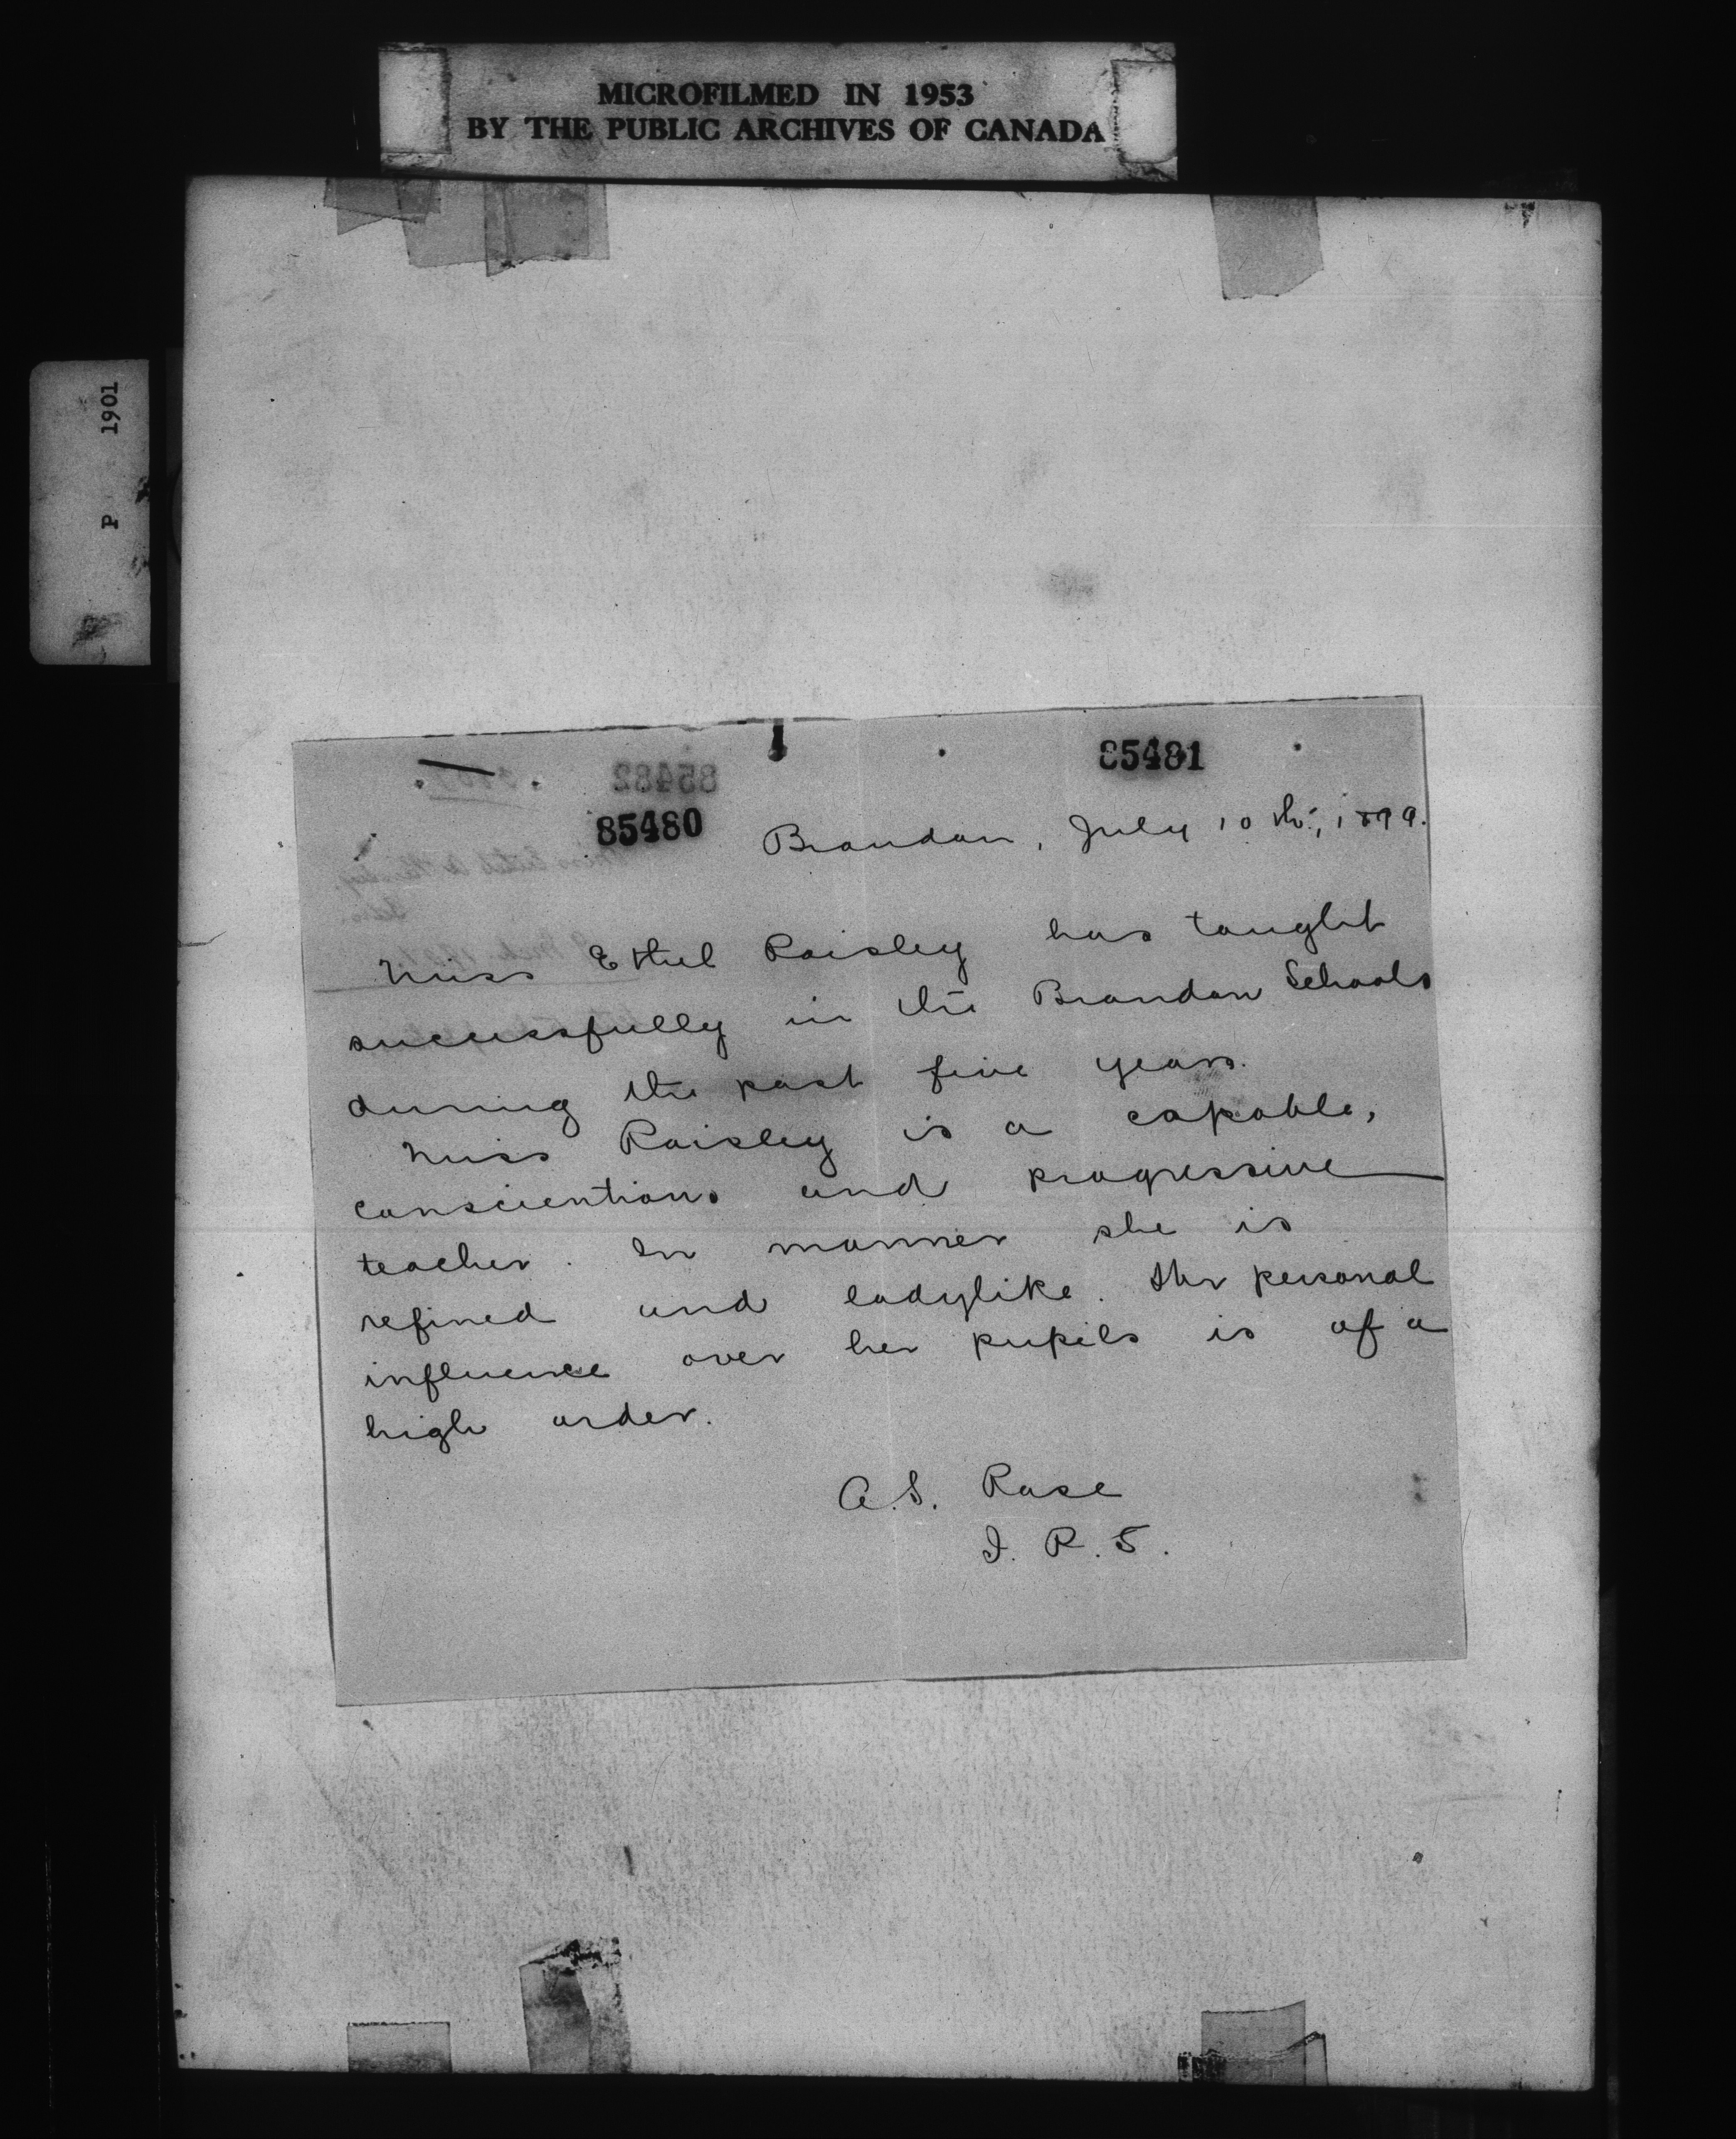 MICROFILMED IN 1953
BY THE PUBLIC ARCHIVES OF CANADA
P 1901
85481
85482
85480
Brandon, July 10th, 1899.
Miss Ethel Paisley has taught
successfully in the Brandon Schools
during the past five years.
Miss Paisley is a capable,
conscientious and progressive
teacher. In manner she is
refined and ladylike. Her personal
influence over her pupils is of a
high order.
A.S. Rose
I. P. S.